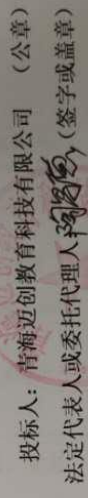 投标人：青海迈创教育科技有限公司 （公章）
法定代表人或委托代理人 （签字或盖章）